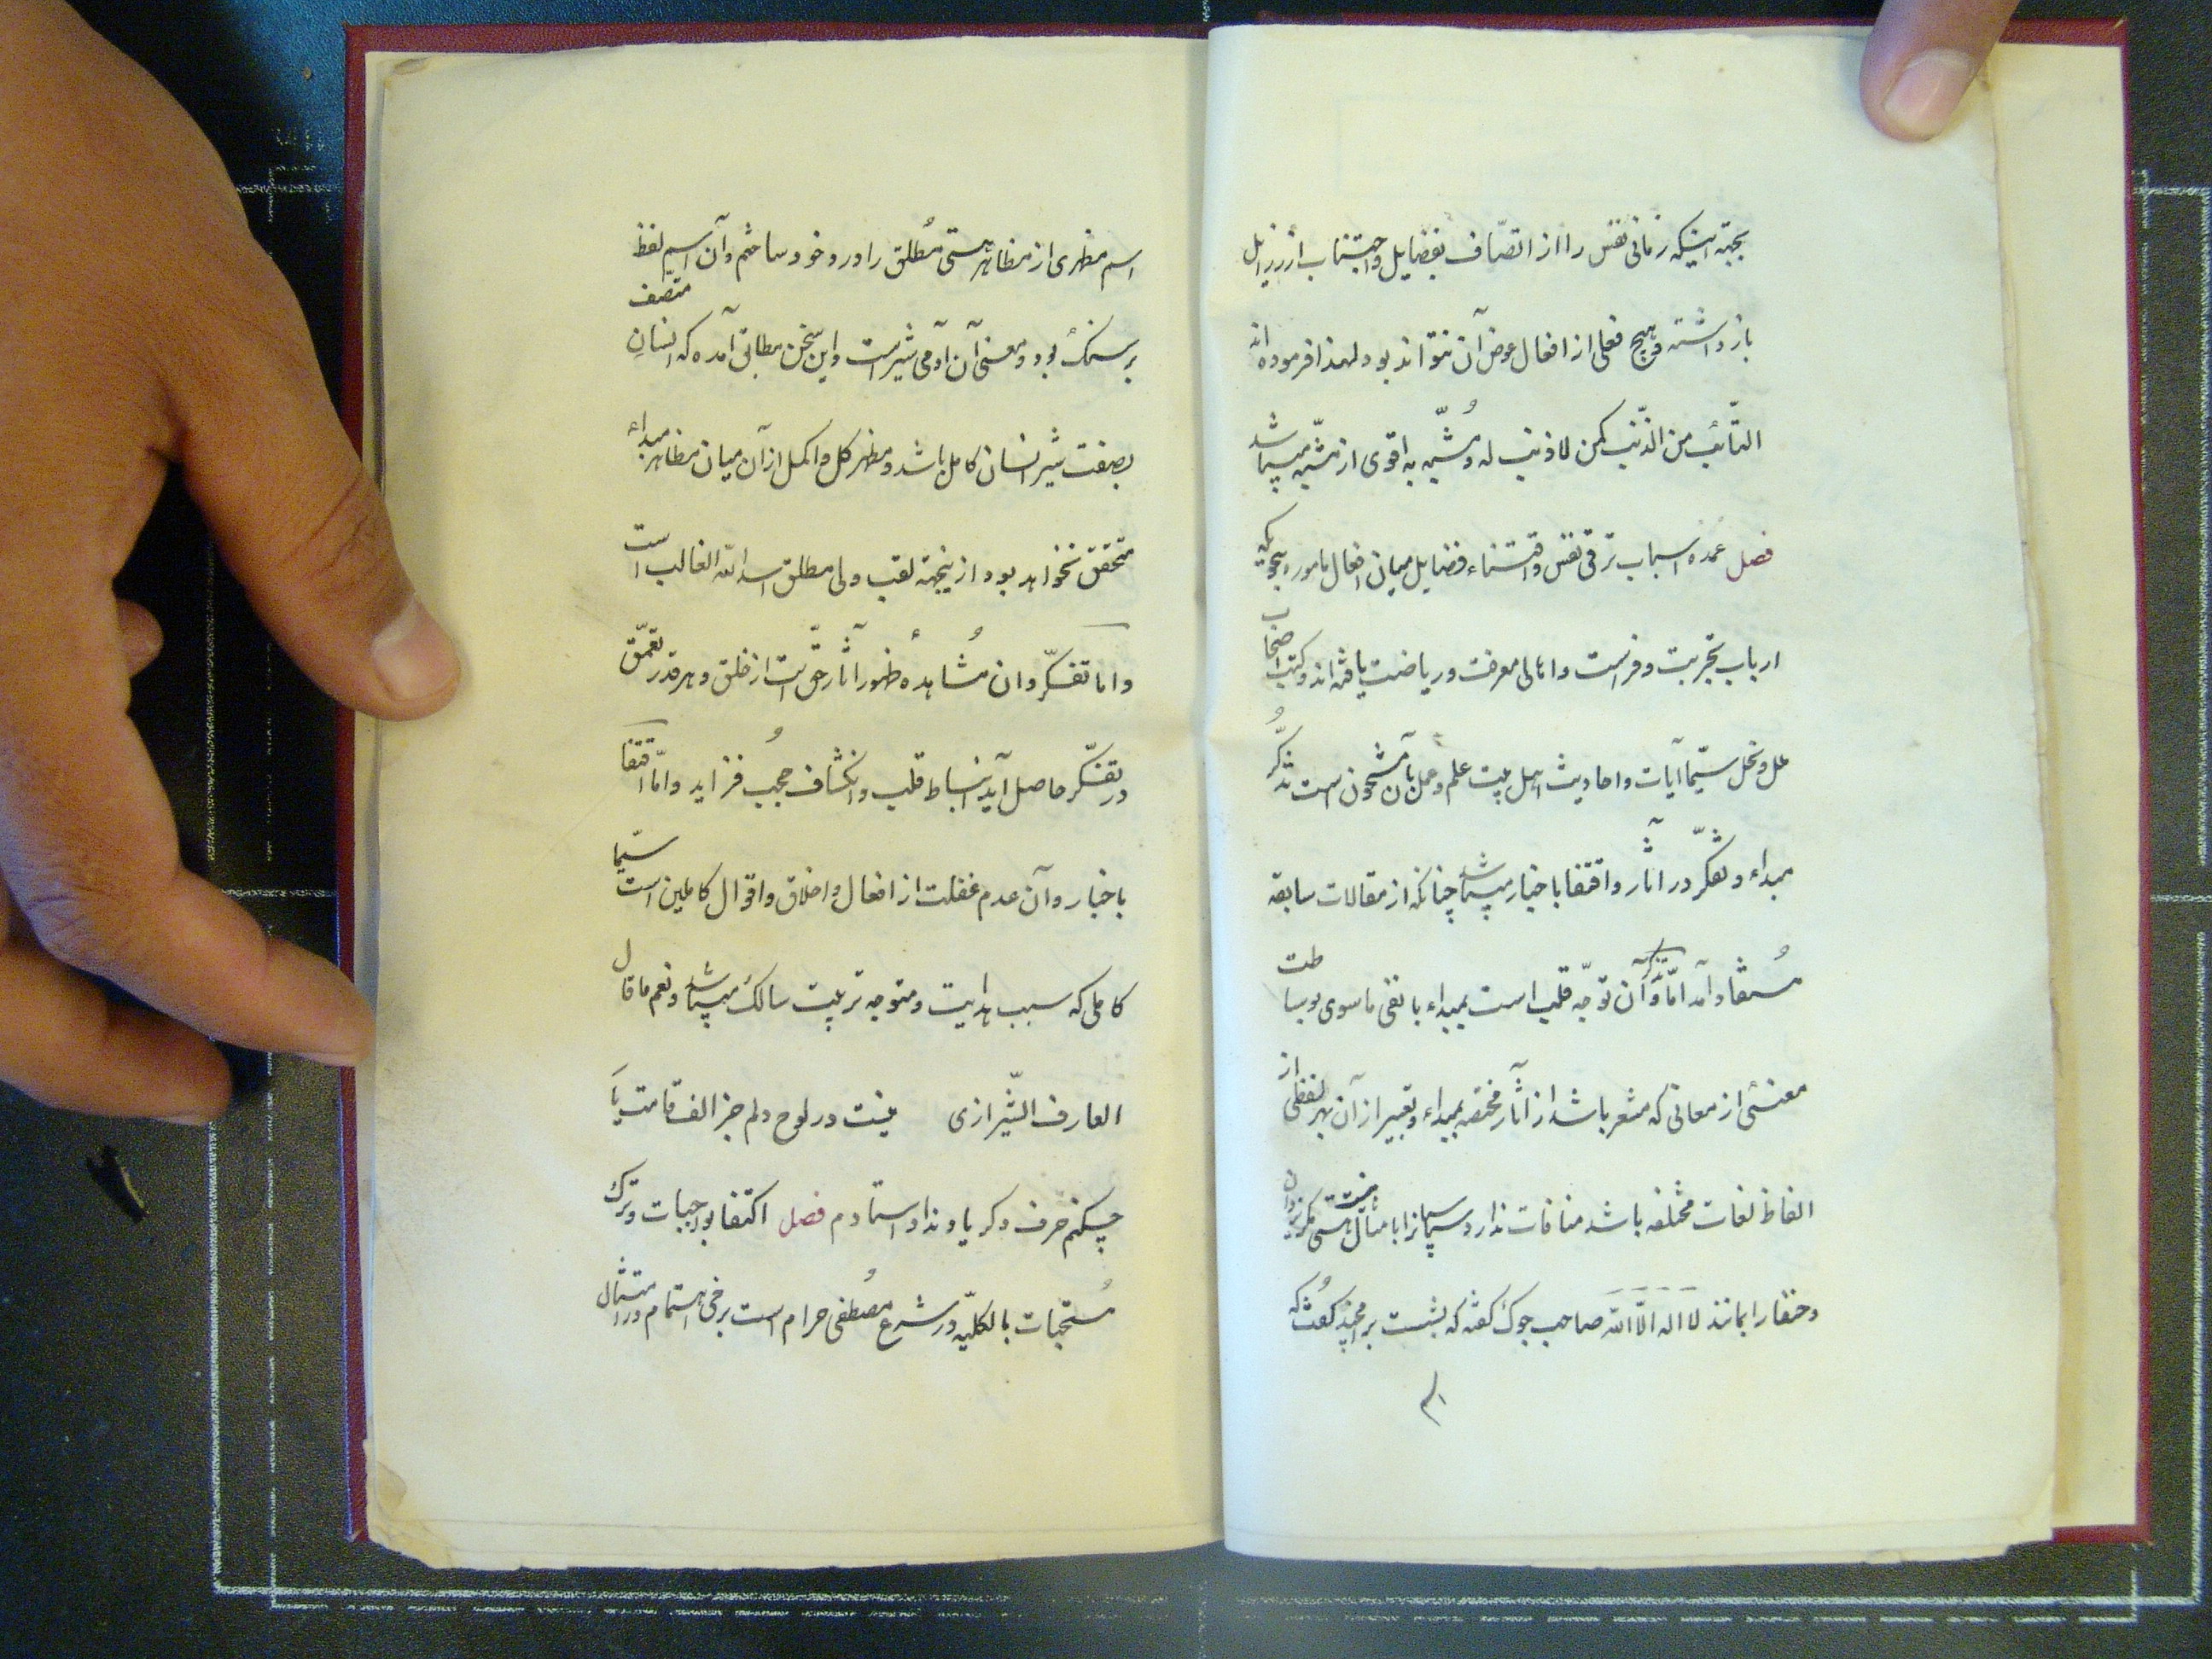 بجهة اینکه زمانی نفس را از اتصّاف بفضایل و اجتناب از رزایل
بازداشته و هیچ فعلی از افعال عوض آن نتواند بود لهذا فرموده اند
التّائب من الذّنب کمن لا ذنب له و مُشبّه به اقوی از مشبّه میباشد
فصل عمده اسباب ترقی نفس و اقتناء فضایل میان افعال مامور به
ارباب تجربت و فراست و اهالی معرفت و ریاضت یافته اند و کتب اصحاب
ملل و نحل سیّما آیات و احادیث اهل بیت علم و عمل بآن مشحونست تذکّر
مبداء و تفکّر در آثار و اقتفا باخبار میباشد چنانکه از مقالات سابقه
مُستفاد آمد امّا تذکّر و آن توجّه قلب است بمبداء با نفی ماسوی بوساطت
معنئی از معانی که مشعر باشد از آثار مختصه بمبداء و تعبیر از آن بهر لفظی از
الفاظ لغات مختلفه باشد منافات ندارد
و حنفا را بمانند لا اله الّا الله صاحب جوک گفته که بشست برامچند گفت که
اسم مظهری از مظاهر هستی مُطلق را ورد خود ساختم و آن اسم لفظ
بود و معنی آن آدمی شیر است و این سخن مطابق آمده که انسانِ متّصف
بصفت شیر انسان کامل باشد و مظهر کل و اکمل از آن میان مظاهر مبداء
متحقق نخواهد بود از ینجهة لقب ولی مطلق اسد الله الغالب است
و اما تفکّر و ان مُشاهدهٔ ظهور آثار حقّ است از خلق و هر قدر تعمّق
در تفکّر حاصل آید انبساط قلب و انکشاف حجُب فزاید و امّا اقتفا
باخبار و آن عدم غفلت از افعال و اخلاق و اقوال کاملین است سیّما
کاملی که سبب هدایت و متوجه تربیت سالک میباشد و نعم ما قال
العارف الشّیرازی نیست در لوح دلم جز الف قامت یار
چکنم حرف دکر یاد نداد استادم فصل اکتفا بواجبات و ترک
مُستحبّات بالکلّیه در شرع مُصطفی حرام است برخی اهتمام در امتثال